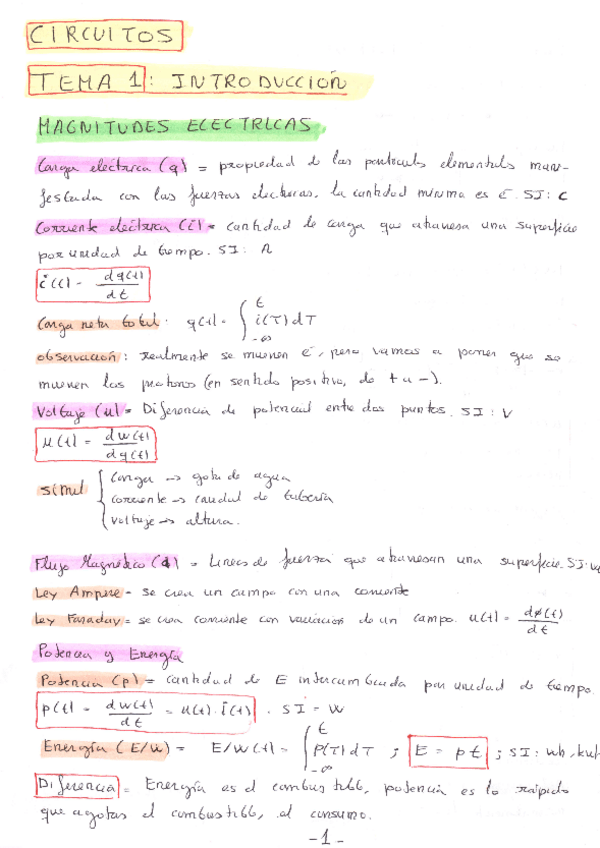 CIRCUITOS
TEMA 1: INTRODUCCIÓN
MAGNITUDES ELECTRICAS
Carga eléctrica (q) = propiedad de las particulas elementales mani-
festada con las fuerzas electricas. la cantidad minima es é. SI: C
Corriente eléctrica (i) = cantidad de carga que atraviesa una superficie
por unidad de tiempo. SI: A
i(t) = dq(t)/dt
Carga neta total: q(t) = ∫_{-∞}^{t} i(T) dT
Observación: realmente se mueven é, pero vamos a poner que se
mueven los protones (en sentido positivo, de + a -).
Voltaje (u) = Diferencia de potencial entre dos puntos. SI: V
u(t) = dw(t)/dq(t)
simil { Carga → gota de agua
corriente → caudal de tubería
Voltaje → altura.
Flujo Magnético = Lineas de fuerza que atraviesan una superficie. SI: W
Ley Ampere = se crea un campo con una corriente
Ley Faraday = se crea corriente con variación de un campo. u(t) = dφ(t)/dt
Potencia y Energía
Potencia (p) = cantidad de E intercambiada por unidad de tiempo.
p(t) = dw(t)/dt = u(t) · i(t) . SI = W
Energía (E/w) = E/w(t) = ∫_{-∞}^{t} p(T) dT ; E = p t ; SI: wh, kwh
Diferencia = Energía es el combustible, potencia es lo rápido
que agotas el combustible, el consumo.
-1-